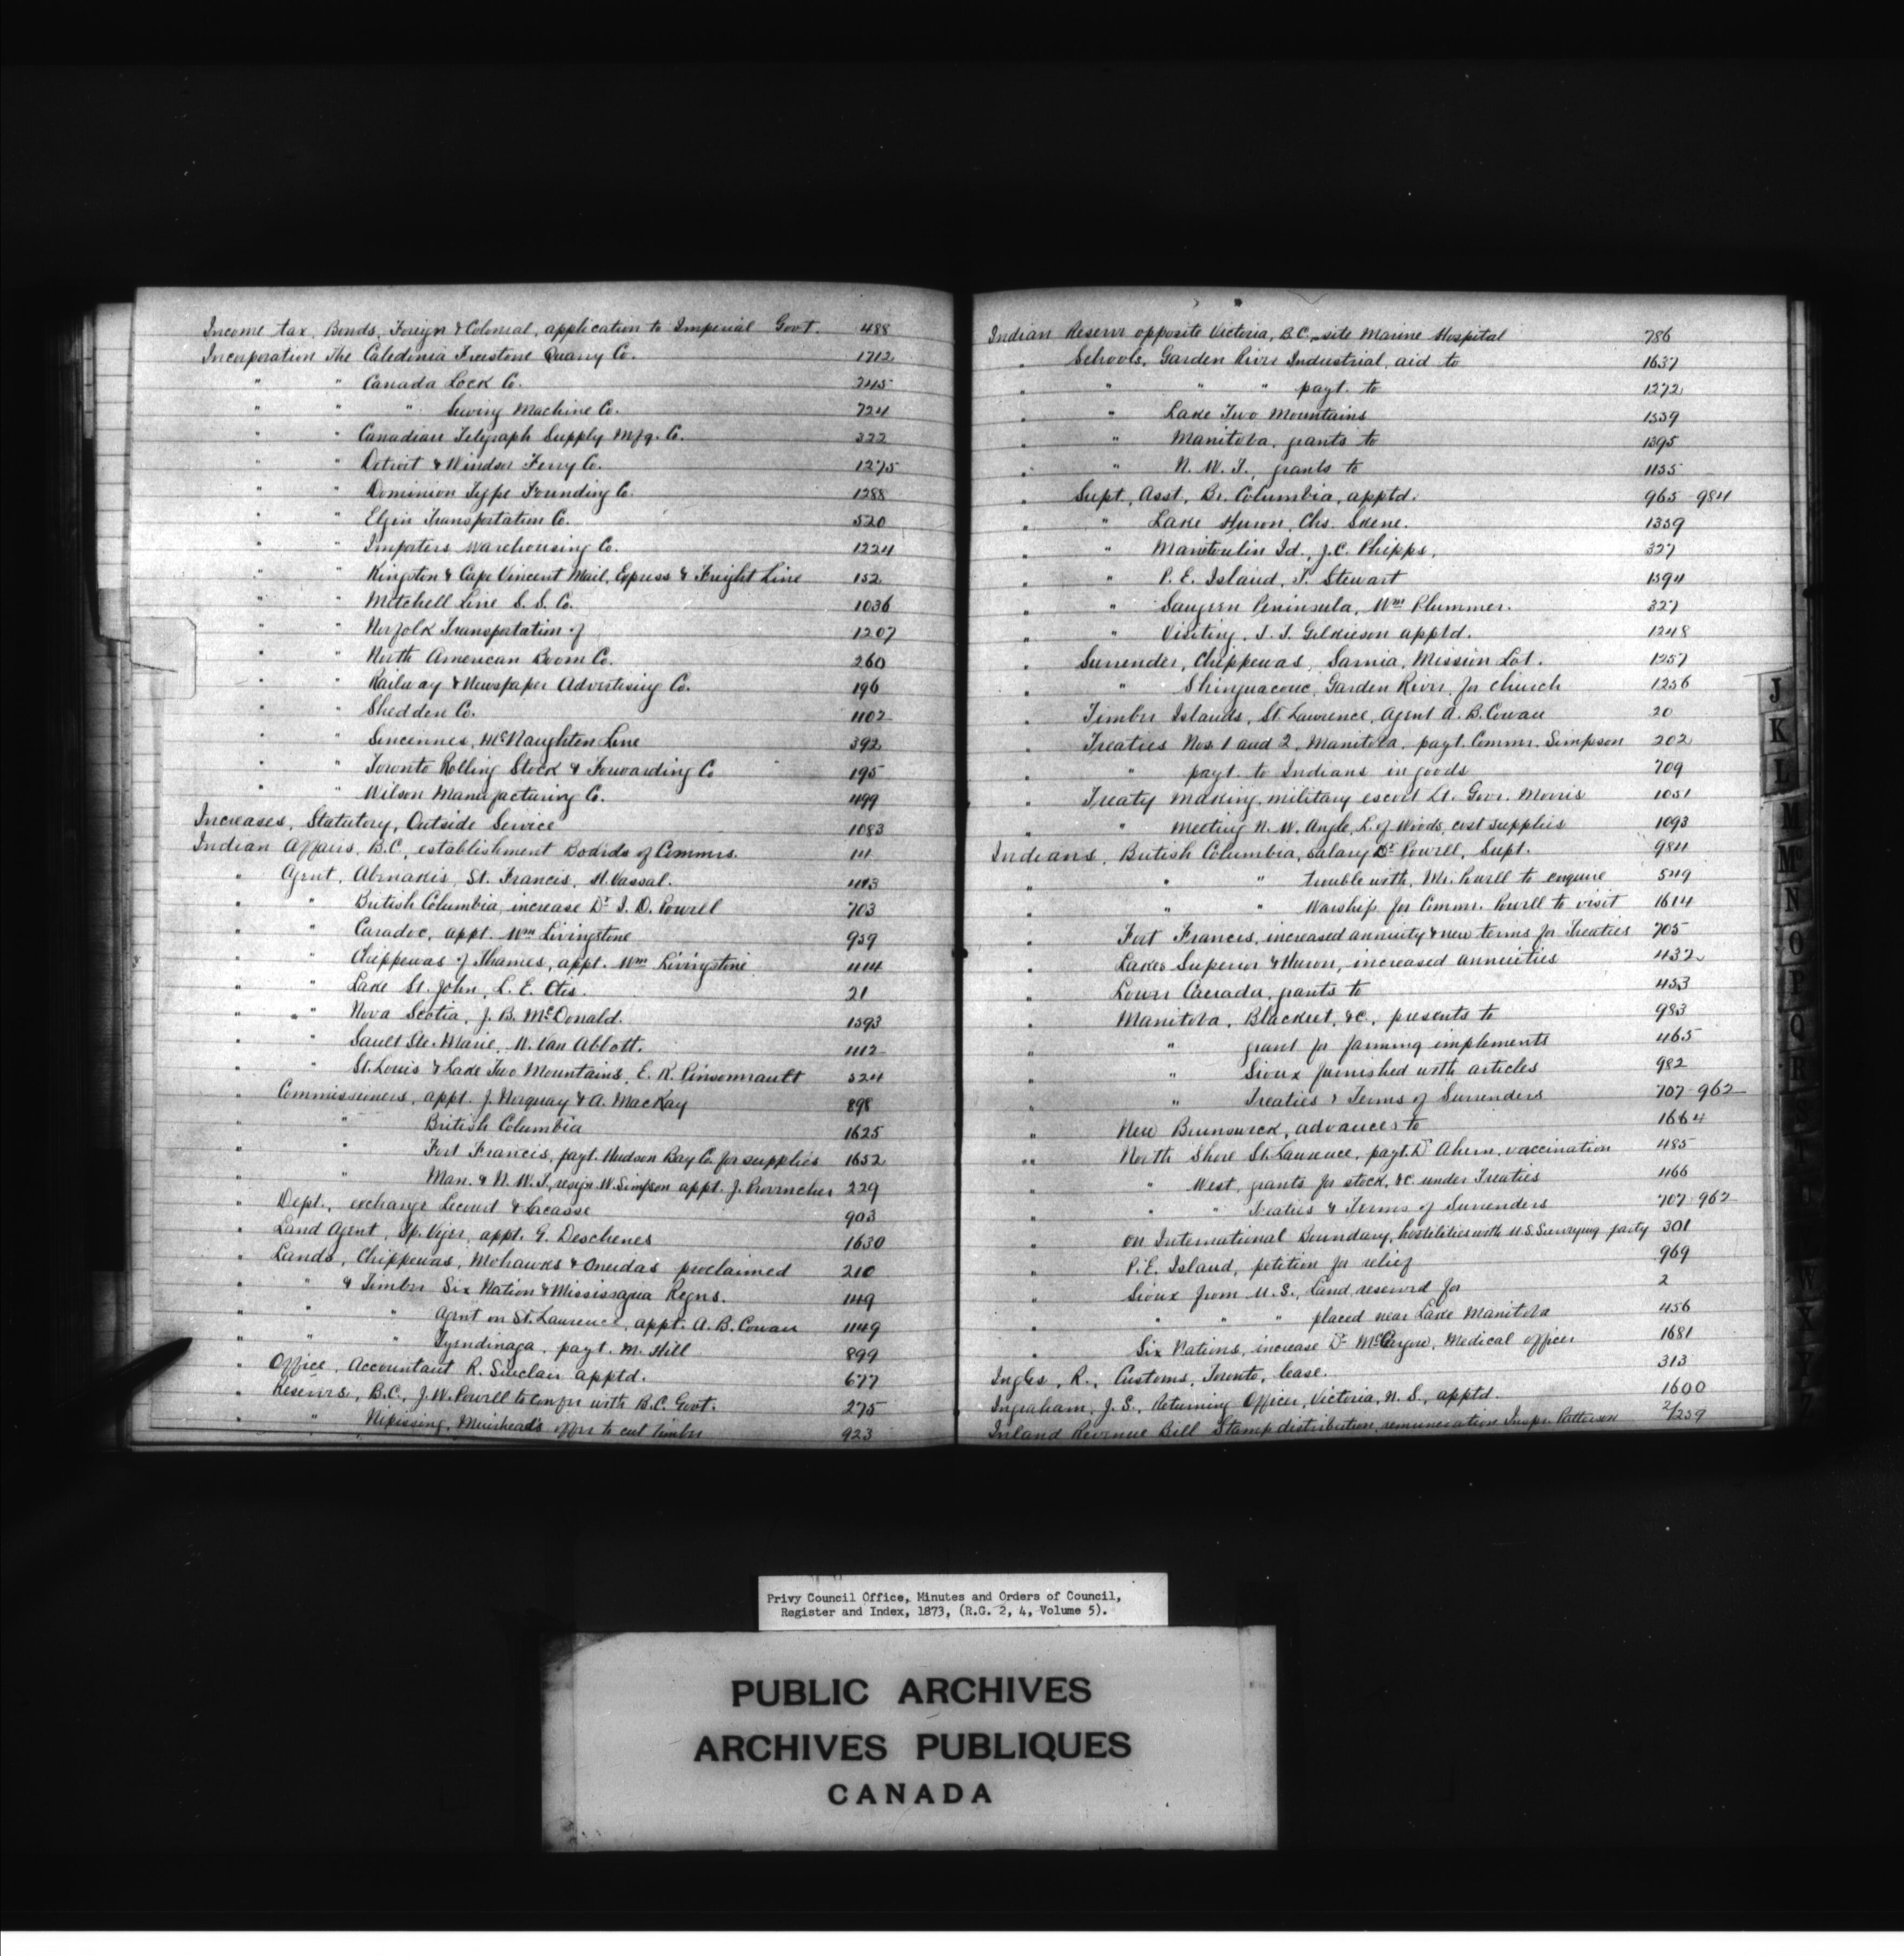 Income tax, Bonds, Foreign & Colonial, application to Imperial Govt. 488
Incorporation The Caledonia Freestone Quarry Co. 1712
" " Canada Lock Co. 245
" " " Sewing Machine Co. 724
" " Canadian Telegraph Supply Mfg. Co. 322
" " Detroit & Windsor Ferry Co. 1275
" " Dominion Type Founding Co. 1288
" " Elgin Transportation Co. 520
" " Importers Warehousing Co. 1224
" " Kingston & Cape Vincent Mail, Express & Freight Line 152
" " Mitchell Line S. S. Co. 1036
" " Norfolk Transportation of 1207
" " North American Boom Co. 260
" " Railway & Newspaper Advertising Co. 196
" " Shedden Co. 1102
" " Sincennes, McNaughton Line 392
" " Toronto Rolling Stock & Forwarding Co 195
" " Wilson Manufacturing Co. 499
Increases, Statutory, Outside Service 1083
Indian Affairs, B.C., establishment Boards of Commrs. 111
" Agent, Abenakis, St. Francis, H. Vassal. 443
" " British Columbia, increase Dr I. D. Powell 703
" " Caradoc, appt. Wm Livingstone 959
" " Chippewas of Thames, appt. Wm Livingstone 444
" " Lake St. John, L. E. Otis. 21
" " Nova Scotia, J. B. McDonald. 1593
" " Sault Ste. Marie, W. Van Abbott. 442
" " St. Louis & Lake Two Mountains, E. R. Pinsonnault 524
" Commissioners, appt. J. Norquay & A. MacKay 898
" " British Columbia 1625
" " Fort Francis, payt. Hudson Bay Co. for supplies 1652
" " Man. & N. W. T., resign. W. Simpson appt. J. Provencher 229
" Dept., exchange Lecourt & Lacasse 903
" Land Agent, Sp. Viger, appt. G. Deschenes 1630
" Lands, Chippewas, Mohawks & Oneidas proclaimed 210
" " & Timber Six Nation & Mississagua Regns. 149
" " " Agent on St. Lawrence, appt. A. B. Cowan 1149
" " " Tyendinaga, payt. M. Hill 899
" Office, Accountant R. Sinclair apptd. 677
" Reserves, B.C., J. W. Powell to confer with B.C. Govt. 275
" " Nipissing, Muirhead's offer to cut timber 923
Indian Reserve opposite Victoria, B.C., site Marine Hospital 786
" Schools, Garden River Industrial, aid to 1637
" " " " payt. to 1272
" " Lake Two Mountains 1339
" " Manitoba, grants to 1395
" " N. W. T., grants to 1135
" Supt., Asst., Br. Columbia, apptd. 965-984
" " Lake Huron, Chs. Skene. 1339
" " Manitoulin Id., J. C. Phipps. 327
" " P. E. Island, T. Stewart 1594
" " Saugeen Peninsula, Wm Plummer. 327
" " Visiting, J. T. Gilkieson apptd. 1248
" Surrender, Chippewas, Sarnia, Mission Lot. 1257
" " Shinguacouc, Garden River, for church 1256
" Timber Islands, St. Lawrence, Agent A. B. Cowan 20
" Treaties Nos. 1 and 2, Manitoba, payt. Commr. Simpson 202
" " payt. to Indians in goods 709
" Treaty making, military escort Lt. Govr. Morris 1051
" " Meeting N. W. Angle, L. of Woods, cost supplies 1093
Indians, British Columbia, salary Dr Powell, Supt. 984
" " " trouble with, Mr. Powell to enquire 549
" " " Warship for Commr. Powell to visit 1614
" Fort Francis, increased annuity & new terms for Treaties 705
" Lakes Superior & Huron, increased annuities 432
" Lower Canada, grants to 453
" Manitoba, Blackeet, &c., presents to 983
" " grant for farming implements 465
" " Sioux furnished with articles 982
" " Treaties & Terms of Surrenders 707-962
" New Brunswick, advances to 1664
" North Shore St. Lawrence, payt. Dr Ahern, vaccination 485
" " West, grants for stock, &c. under Treaties 466
" " " Treaties & Terms of Surrenders 707-962
" on International Boundary, hostilities with U.S. Surveying party 301
" P.E. Island, petition for relief 969
" Sioux from U.S., land reserved for 2
" " " placed near Lake Manitoba 456
" Six Nations, increase Dr McCargow, Medical officer 1681
Ingles, R., Customs, Toronto, lease. 313
Ingraham, J. S., Returning Officer, Victoria, N. S., apptd. 1600
Inland Revenue Bill Stamp distribution, remuneration Inspr. Patterson 2/259
J
K
L
M
Mc
N
O
P
Q
R
S
T
W
X
Y
Z
Privy Council Office, Minutes and Orders of Council,
Register and Index, 1873, (R.G. 2, 4, Volume 5).
PUBLIC ARCHIVES
ARCHIVES PUBLIQUES
CANADA